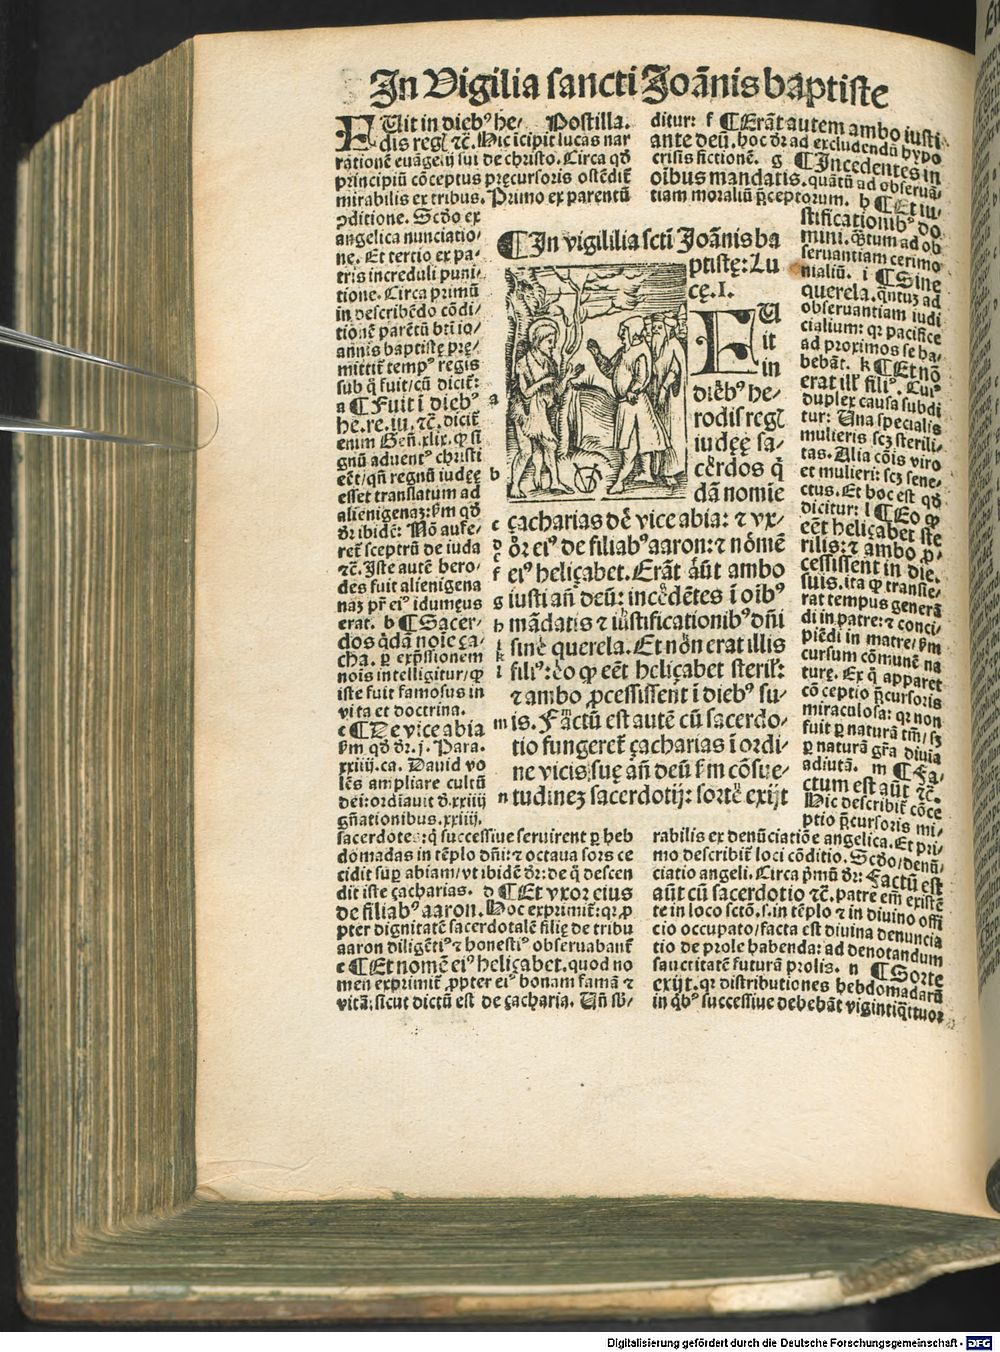 In Vigilia sancti Joãnis baptiste
FUit in dieb⁹ he⸗ Postilla.
dis regꝭ ⁊c̃. Hic icipit lucas nar
rationẽ euãgelij sui de christo. Circa qḋ
principiũ cõceptus pręcursoris ostẽdit̃
mirabilis ex tribus. Primo ex parentũ
ꝯditione. Scḋo ex
angelica nunciatio⸗
ne. Et tertio ex pa⸗
tris increduli puni⸗
tione. Circa primũ
in describẽdo cõdi⸗
tionẽ parẽtũ bt̃i io⸗
annis baptistę pre⸗
mittit̃ temp⁹ regis
sub q̃ fuit/cũ dicit̃:
a ¶Fuit ĩ dieb⁹
he.re.iu.⁊c̃. dicit̃
enim Geñ.xlix. ꝙ si
gnũ aduent⁹ christi
eẽt/qñ regnũ iudęę
esset translatum ad
alienigenaʒ: s̃m qḋ
dr̃ ibidẽ: Nõ aufe⸗
ret̃ sceptrũ de iuda
⁊c̃. Iste autẽ hero⸗
des fuit alienigena
naʒ pr̃ ei⁹ idumęus
erat. b ¶Sacer⸗
dos q̃dã noĩe ça⸗
cha. ꝑ exp̃ssionem
nois intelligitur/ꝙ
iste fuit famosus in
vita et doctrina.
c ¶De vice abia
s̃m qḋ dr̃.j. Para.
xxiiij.ca. Dauid vo
lẽs ampliare cultũ
dei: ordiauit d̃.xxiiij
gñationibus.xxiiij.
sacerdotes: q̃ successiue seruirent ꝑ heb
domadas in tẽplo dñi: ⁊ octaua sors ce
cidit suꝑ abiam/vt ibidẽ dr̃: de q̃ descen
dit iste çacharias. d ¶Et vxor eius
de filiab⁹ aaron. Hoc exprimit̃: qꝛ ꝓ
pter dignitatẽ sacerdotalẽ filię de tribu
aaron diligẽti⁹ ⁊ honesti⁹ obseruabant̃
e ¶Et nomẽ ei⁹ heliçabet. quod no
men exprimit̃ ꝓpter ei⁹ bonam famã ⁊
vitã: sicut dictũ est de çacharia. Uñ sb̃⸗
ditur: f ¶Erãt autem ambo iusti
ante deũ. hoc dr̃ ad excludendũ hypo
crisis fictionẽ. g ¶Incedentes in
oĩbus mandatis. quãtũ ad obseruã⸗
tiam moraliũ p̃ceptorum. h ¶Et iu⸗
stificationib⁹ do
mini. q̃tum ad ob
seruantiam cerimo
nialiũ. i ¶Sine
querela. q̃ntuʒ ad
obseruantiam iudi
cialium: qꝛ pacifice
ad proximos se ha⸗
bebãt. k ¶Et nõ
erat illꝭ fili⁹. Cui⁹
duplex causa subdi
tur: Una specialis
mulieris scʒ sterili⸗
tas. Alia cõis viro
et mulieri: scʒ sene⸗
ctus. Et hoc est qḋ
dicitur: l ¶Eo ꝙ
eẽt heliçabet ste
rilis: ⁊ ambo ꝓ⸗
cessissent in die.
suis. ita ꝙ transie⸗
rat tempus generã
di in patre: ⁊ conci⸗
piẽdi in matre/s̃m
cursum cõmunẽ na
turę. Ex q̃ apparet
cõceptio p̃cursoris
miraculosa: qꝛ non
fuit ꝑ naturã tm̃/sʒ
ꝑ naturã gr̃a diuia
adiutã. m ¶Fa⸗
ctum est aũt ⁊c̃.
Hic describit̃ cõce
ptio p̃cursoris mi⸗
rabilis ex denũciatiõe angelica. Et pri⸗
mo describit̃ loci cõditio. Scḋo/denũ⸗
ciatio angeli. Circa p̃mũ dr̃: Factũ est
aũt cũ sacerdotio ⁊c̃. patre em̃ existẽ
te in loco sctõ. s. in tẽplo ⁊ in diuino offi
cio occupato/facta est diuina denuncia
tio de prole habenda: ad denotandum
sanctitatẽ futurã prolis. n ¶Sorte
exijt. qꝛ distributiones hebdomadarũ
in q̃b⁹ successiue debebãt vigintiq̃ttuor
¶In vigililia scti Joãnis ba
ptistę: Lu
cę. I.
FU
it
in
dieb⁹ he⸗
rodis regꝭ
iudęę sa⸗
cerdos q̃
dã nomie
çacharias de vice abia: ⁊ vx⸗
or ei⁹ de filiab⁹ aaron: ⁊ nomẽ
ei⁹ heliçabet. Erãt aũt ambo
iusti añ deũ: incedẽtes ĩ oĩb⁹
mãdatis ⁊ iustificationib⁹ dñi
sine querela. Et non erat illis
fili⁹: eo ꝙ eẽt heliçabet steril̃:
⁊ ambo ꝓcessissent ĩ dieb⁹ su⸗
is. Factũ est autẽ cũ sacerdo⸗
tio fungeret̃ çacharias ĩ ordi⸗
ne vicis suę añ deũ s̃m cõsue⸗
tudineʒ sacerdotij: sorte exijt
a
b
c
d
e
f
g
h
i
k
l
m
n
Digitalisierung gefördert durch die Deutsche Forschungsgemeinschaft - DFG